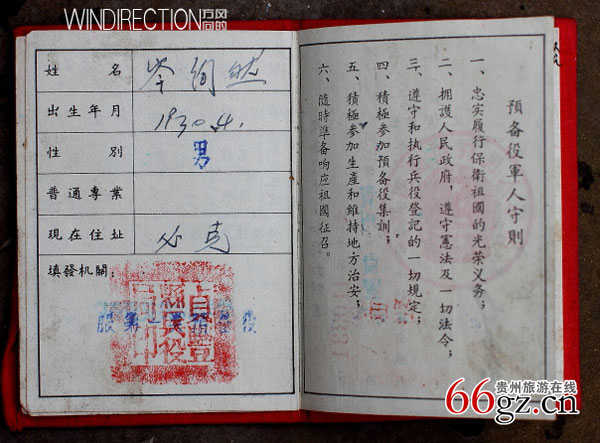 WINDIRECTION方向风的
姓名 岑
出生年月 1930.4.
性別 男
普通專業
現在住址
填發机關：
預备役軍人守則
一、忠实履行保衛祖國的光荣义务；
二、拥護人民政府，遵守憲法及一切法令；
三、遵守和执行兵役登記的一切規定；
四、積極参加預备役集訓；
五、積極参加生產和維持地方治安；
六、隨時準备响应祖國征召。
66gz.cn
贵州旅游在线